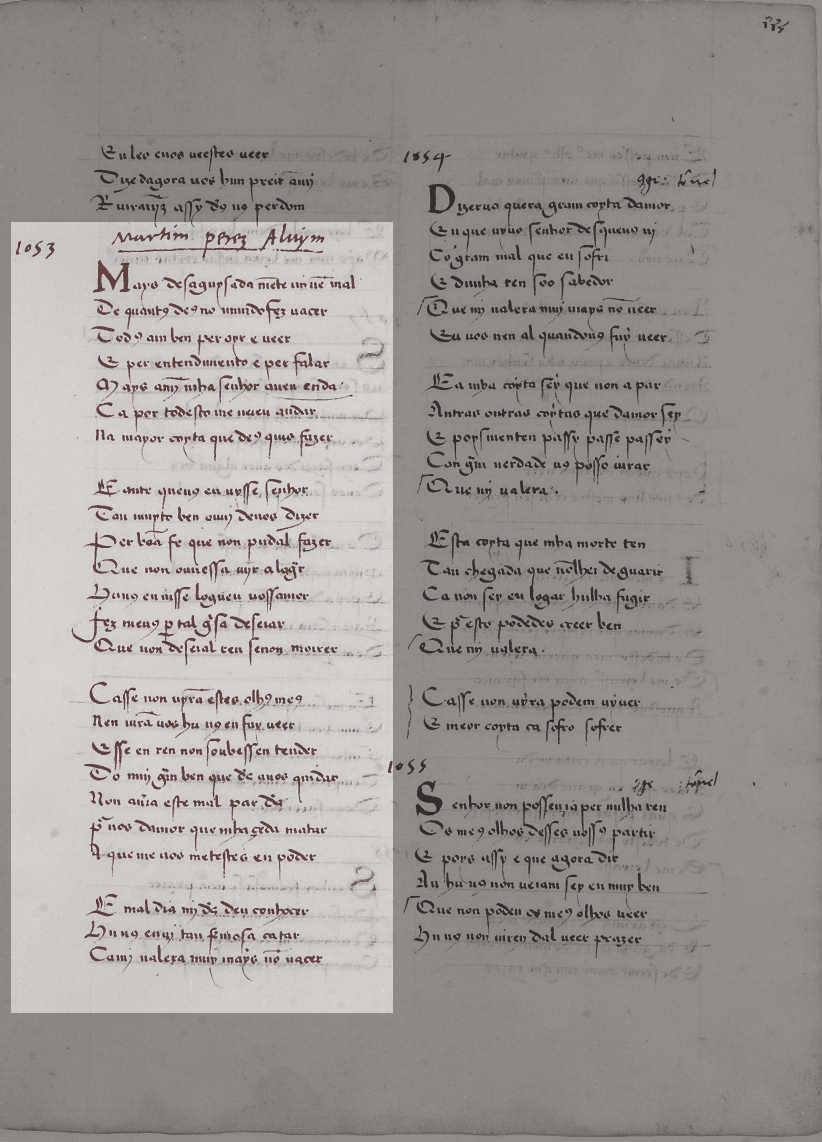 En leo enos ueestes ueer
Dizedagora uos hun preit amj
1053
Martim perez Aluym
Mays desaguysada mẽte mj uẽ mal
De quantꝯ deꝯ no mundo fez nacer
Todꝯ am ben per oyr e ueer
E per entendimento e per falar
Mays amj mha senhor auen enda
Ca por todesto me ueueu andar
Na mayor coyta que deꝯ quis fazer
E ante queuꝯ eu uysse senhor
Tan muyto ben ouuj deuos dizer
Per bõa fe que non pudal fazer
Que non ouuessa uijr a logar
Hu uꝯ eu uisse logueu uossamor
Fez meuꝯ ꝑ tal gisa deseiar
Que non deseial ren senon morrer
Casse non uyrã estes olhꝯ meꝯ
Nen uirã uos hu uꝯ en fuy ueer
Esse en ren non soubessen tender
Do muj grã ben que d's auos
Non auria este mal par d's
per uos damor que mha matar
A que me uos metestes en poder
E mal dia mj d's deu conhocer
Hu uꝯ enuj tan fremosa catar
Camj ualera muy mays nõ nacer
1054
tornel
Dizeruꝯ quera gram coyta damor
En que uyuo senhor desqueuꝯ uj
E o gram mal que eu sofri
E dunha ren soo sabedor
Que mj ualera muj mays nõ ueer
Eu uos nen al quandouꝯ fuy ueer
Ca mha coyta sey que non a par
Antras outras coytas que damor sey
E poysmenten passy passe passey
Con grã uerdade uꝯ posso iurar
Que mj ualera
Esta coyta que mha morte ten
Tan chegada que nõlhei deguarir
Ca non sey eu logar hulha fugir
E per esto podedes creer ben
Que mj ualera
Casse non uyra podem uyuer
E meor coyta ca sofro sofrer
1055
tornel
Senhor non possen ia per nulha ren
Os meꝯ olhos desses uossꝯ partir
E poys assy e que agora dir
An hu uꝯ non ueiam sey eu muy ben
Que non poden os meꝯ olhos ueer
Hu uꝯ non uiren dal ueer prazer